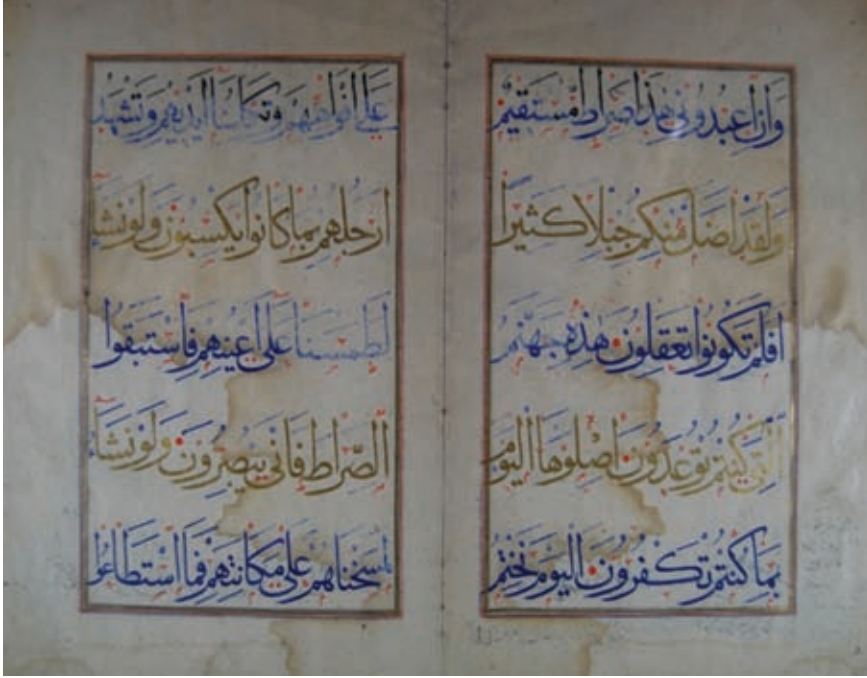 وَاَنِ اعْبُدُونِي هٰذَا صِرَاطٌ مُسْتَقِيمٌ
وَلَقَدْ اَضَلَّ مِنْكُمْ جِبِلًّا كَثِيرًا
اَفَلَمْ تَكُونُوا تَعْقِلُونَ هٰذِهِ جَهَنَّمُ
الَّتِي كُنْتُمْ تُوعَدُونَ اِصْلَوْهَا الْيَوْمَ
بِمَا كُنْتُمْ تَكْفُرُونَ اَلْيَوْمَ نَخْتِمُ
عَلٰى اَفْوَاهِهِمْ وَتُكَلِّمُنَا اَيْدِيهِمْ وَتَشْهَدُ
اَرْجُلُهُمْ بِمَا كَانُوا يَكْسِبُونَ وَلَوْ نَشَاءُ
لَطَمَسْنَا عَلٰى اَعْيُنِهِمْ فَاسْتَبَقُوا
الصِّرَاطَ فَاَنّٰى يُبْصِرُونَ وَلَوْ نَشَاءُ
لَمَسَخْنَاهُمْ عَلٰى مَكَانَتِهِمْ فَمَا اسْتَطَاعُوا